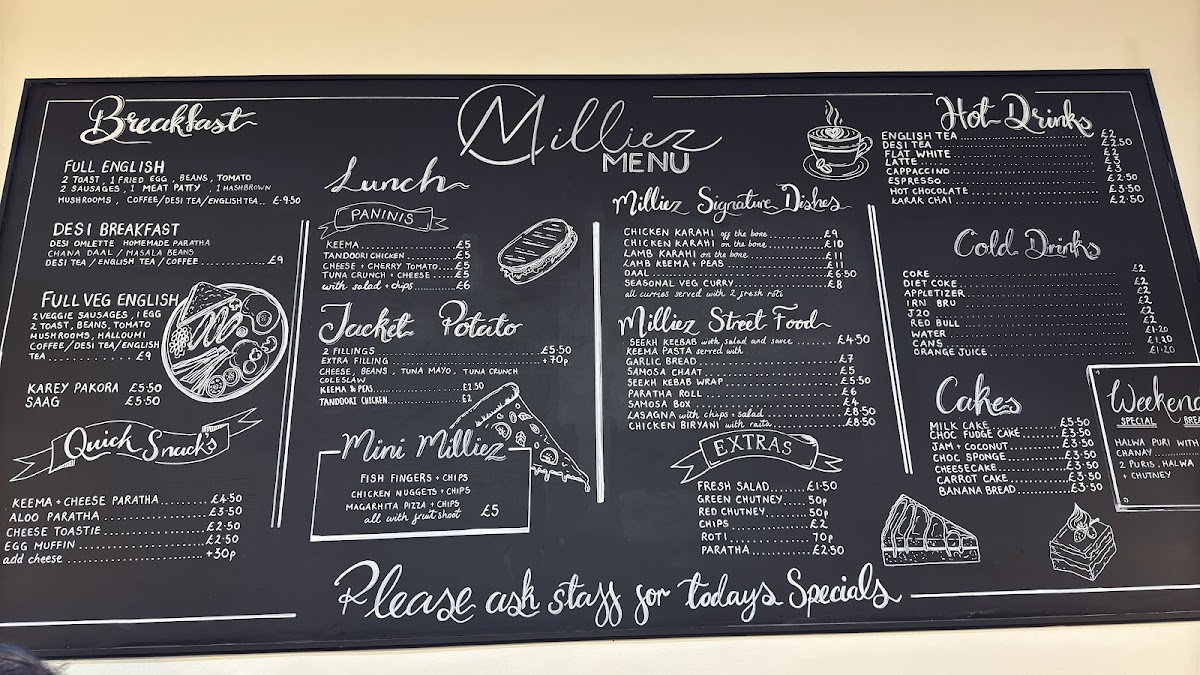 Milliez
MENU
Breakfast
FULL ENGLISH
2 TOAST, 1 FRIED EGG, BEANS, TOMATO
2 SAUSAGES, 1 MEAT PATTY, 1 HASHBROWN
MUSHROOMS, COFFEE/DESI TEA/ENGLISH TEA.. £9.50
DESI BREAKFAST
DESI OMLETTE HOMEMADE PARATHA
CHANA DAAL / MASALA BEANS
DESI TEA / ENGLISH TEA / COFFEE....................£9
FULL VEG ENGLISH
2 VEGGIE SAUSAGES, 1 EGG
2 TOAST, BEANS, TOMATO
MUSHROOMS, HALLOUMI
COFFEE/DESI TEA/ENGLISH
TEA ..................£9
KAREY PAKORA £5.50
SAAG £5.50
Quick Snack's
KEEMA + CHEESE PARATHA.........£4.50
ALOO PARATHA....................£3.50
CHEESE TOASTIE..................£2.50
EGG MUFFIN......................£2.50
add cheese......................+30p
Lunch
PANINIS
KEEMA....................£5
TANDOORI CHICKEN.........£5
CHEESE + CHERRY TOMATO...£5
TUNA CRUNCH + CHEESE.....£5
with salad + chips.......£6
Jacket Potato
2 FILLINGS..............................£5.50
EXTRA FILLING...........................+70p
CHEESE, BEANS, TUNA MAYO, TUNA CRUNCH
COLESLAW
KEEMA & PEAS....................£2.50
TANDOORI CHICKEN................£2
Mini Milliez
FISH FINGERS + CHIPS
CHICKEN NUGGETS + CHIPS
MAGARHITA PIZZA + CHIPS
all with fruit shoot £5
Milliez Signature Dishes
CHICKEN KARAHI off the bone............£9
CHICKEN KARAHI on the bone.............£10
LAMB KARAHI on the bone................£11
LAMB KEEMA + PEAS......................£11
DAAL...................................£6.50
SEASONAL VEG CURRY.....................£8
all curries served with 2 fresh roti
Milliez Street Food
SEEKH KEEBAB with salad and sauce..........£4.50
KEEMA PASTA served with
GARLIC BREAD...............£7
SAMOSA CHAAT...............£5
SEEKH KEBAB WRAP...........£5.50
PARATHA ROLL...............£6
SAMOSA BOX.................£4
LASAGNA with chips + salad.............£8.50
CHICKEN BIRYANI with raita.............£8.50
EXTRAS
FRESH SALAD......£1.50
GREEN CHUTNEY....50p
RED CHUTNEY......50p
CHIPS............£2
ROTI.............70p
PARATHA..........£2.50
Hot Drinks
ENGLISH TEA......................£2
DESI TEA.........................£2.50
FLAT WHITE.......................£2
LATTE............................£3
CAPPACCINO.......................£3
ESPRESSO.........................£2.50
HOT CHOCOLATE....................£3.50
KARAK CHAI.......................£2.50
Cold Drinks
COKE.............................£2
DIET COKE........................£2
APPLETIZER.......................£2
IRN BRU..........................£2
J20..............................£2
RED BULL.........................£2
WATER............................£1.20
CANS.............................£1.20
ORANGE JUICE.....................£1.20
Cakes
MILK CAKE.............£5.50
CHOC FUDGE CAKE.......£3.50
JAM + COCONUT.........£3.50
CHOC SPONGE...........£3.50
CHEESECAKE............£3.50
CARROT CAKE...........£3.50
BANANA BREAD..........£3.50
Weekend
SPECIAL BREA
HALWA PURI WITH
CHANAY
2 PURIS, HALWA
+ CHUTNEY
Please ask staff for todays Specials